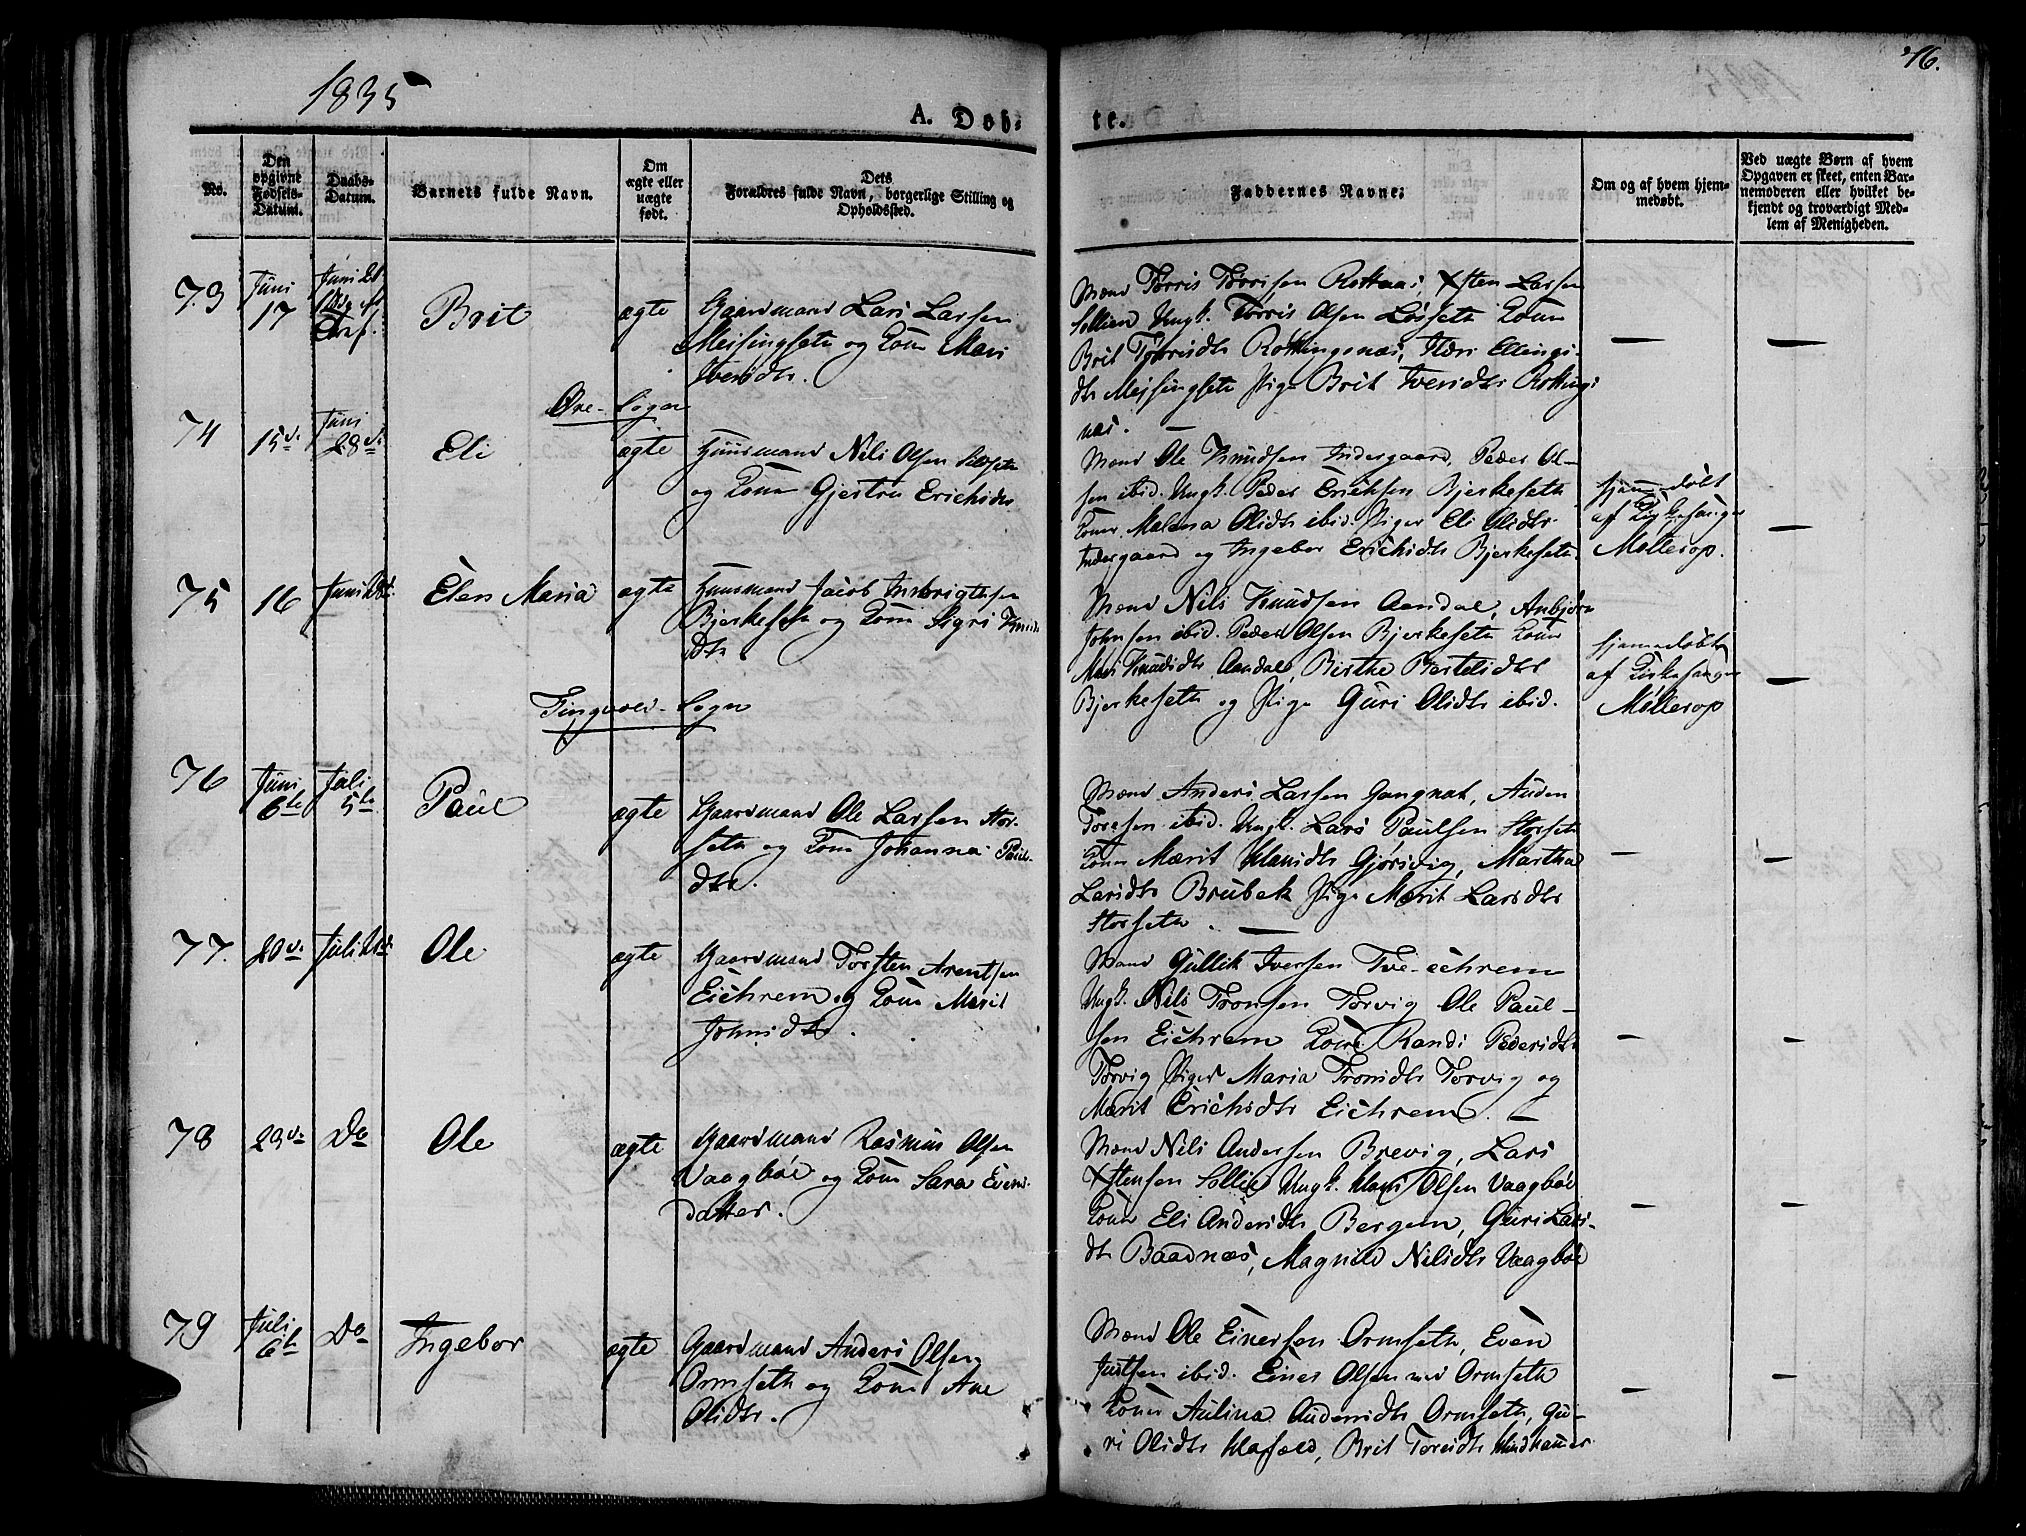 1835
76.
A. Døb-
te.
No.
Den opgivne Fødsels-Datum.
Daabs-Datum.
Barnets fulde Navn.
Om ægte eller uægte født.
Dets Forældres fulde Navn, borgerlige Stilling og Opholdssted.
Faddernes Navne.
Om og af hvem hjem-medøbt.
Ved uægte Børn af hvem Opgaven er skeet, enten Bar-nemoderen eller hvilket be-kjendt og troværdigt Med-lem af Menigheden.
73 Juni 17 Juni 21 Brit ægte Gaardmand Lars Larsen
Meisingseth og Kone Mari
Iversdtr.
Mænd Torris Torrisen Rottnæs, Xsten Larsen
Sollien Ungk. Torris Olsen Løseth Koner
Brit Torrisdtr Rottingsnæs, Ellings-
dtr Meisingseth Pige Brit Iversdtr Rottings
næs. —
Øre-Sogn
74 15de Juni 28de Eli ægte Huusmand Nils Olsen
og Kone Gjertru Erichsdtr
Mænd Ole Knudsen Indergaard, Peder Ol-
sen ibid. Ungk. Peder Erichsen Bjerkeseth
Koner Malena Olsdtr ibid. Piger Eli Olsdtr
Indergaard og Ingebor Erichsdtr Bjerkeseth
hjemmedøbt
af Kirkesanger
Møllerop.
75 16 Juni Elen Maria ægte Huusmand Jacob Ingbrigthsen
Bjerkeseth og Kone Sigri Knuds
Dtr.
Mænd Nils Knudsen Aandal, Anbjørn
Johnsen ibid. Peder Olsen Bjerkeseth Koner
Mari Knudsdtr Aandal, Birthe Bertelsdtr
Bjerkeseth og Pige Guri Olsdtr ibid.
hjemmedøbt
af Kirkesanger
Møllerop
Tingvold-Sogn
76 Juni 6te Juli 5te Paul ægte Gaardmand Ole Larsen Stor-
seth og Kone Johanna Pauls-
dtr.
Mænd Anders Larsen Gangnat, Auden
Toresen ibid. Ungk. Lars Paulsen Storseth
Koner Marit Hansdtr Gjørsvig, Martha
Larsdtr Brubek Pige Marit Larsdtr
Storseth. —
77. 20de Juli Ole ægte Gaardmand Torsten Arentsen
Eichrem og Kone Marit
Johnsdtr.
Mænd Gullik Iversen Tve-echrem
Ungk. Nils Tronsen Torvig Ole Paul-
sen Eichrem Kone Randi Pedersdtr
Torvig Piger Maria Tronsdtr Torvig og
Marit Erichsdtr Eichrem. —
78 23de Do Ole ægte Gaardmand Rasmus Olsen
Vaagbøe og Kone Sara Evens-
datter.
Mænd Nils Andersen Brevig, Lars
Xstensen Sollie Ungk. Hans Olsen Vaagbøe
Koner Eli Andersdtr Bergem, Guri Lars-
dtr Baadnæs, Magnild Nilsdtr Vaagbøe
79 Juli 6te Do Ingebor ægte Gaardmand Anders Olsen
Ormseth og Kone Ane
Olsdtr.
Mænd Ole Einersen Ormseth, Even
Justsen ibid. Einer Olsen Ormseth
Koner Aulina Andersdtr Ormseth, Gu-
ri Olsdtr, Brit Toresdtr